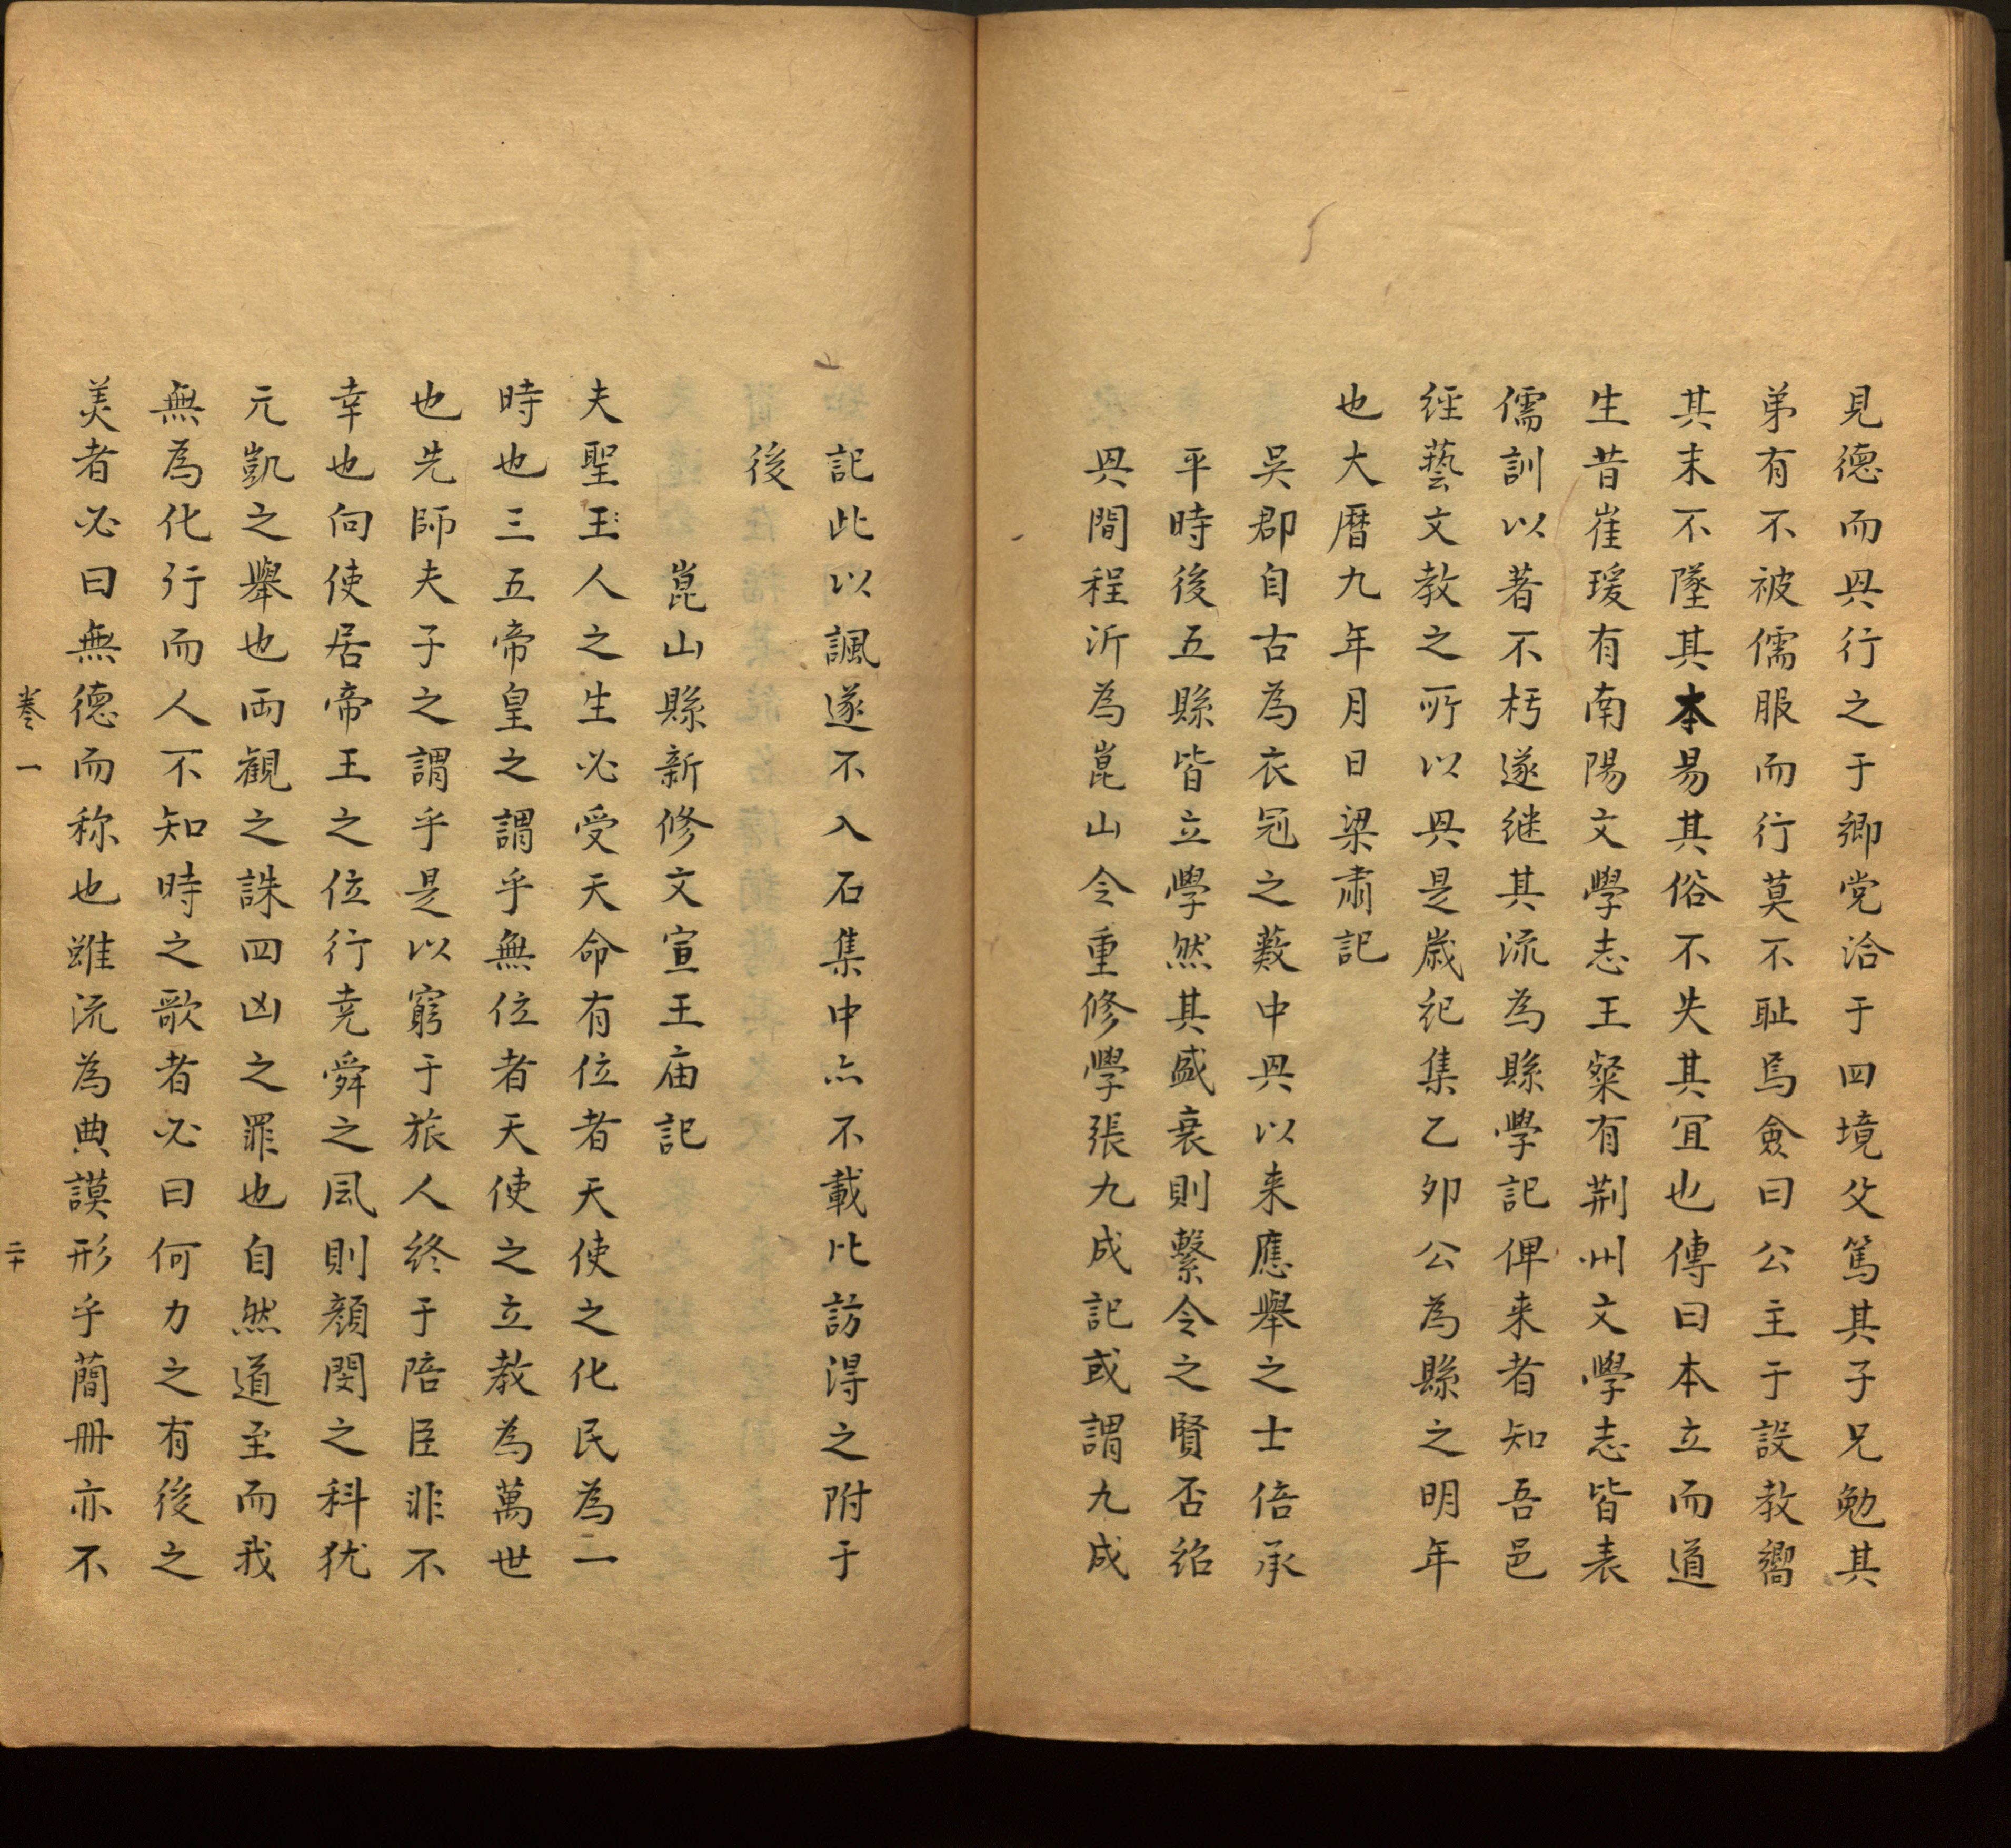 見德而興行之于鄉党洽于四境父篤其子兄勉其
弟有不被儒服而行莫不耻焉僉曰公主于設教嚮
其末不墜其本易其俗不失其宜也傳曰本立而道
生昔崔瑗有南陽文學志王粲有荆州文學志皆表
儒訓以著不朽遂继其流為縣學記俾来者知吾邑
經藝文教之所以興是歳紀集乙夘公為縣之明年
也大曆九年月日梁肅記
吳郡自古為衣冠之薮中興以来應舉之士倍承
平時後五縣皆立學然其盛衰則繫令之賢否紹
興間程沂為崑山令重修學張九成記或謂九成
記此以諷遂不入石集中亦不載比訪淂之附于
後
崑山縣新修文宣王庙記
夫聖王人之生必受天命有位者天使之化民為一
時也三五帝皇之謂乎無位者天使之立教為萬世
也先師夫子之謂乎是以窮于旅人终于陪臣非不
幸也向使居帝王之位行尭舜之風則顔閔之科犹
元凱之舉也両観之誅四凶之罪也自然道至而我
無為化行而人不知時之歌者必曰何力之有後之
美者必曰無德而称也雖流為典謨形乎簡冊亦不
卷一 二十